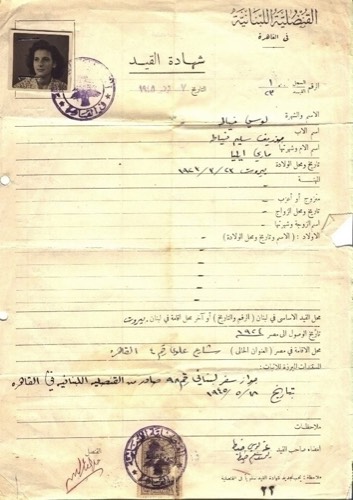 القنصلية اللبنانية
في القاهرة
شهادة القيد
الرقم
السجل ١
القيد ٢٣
التاريخ ٧
الاسم والشهرة لوسي خياط
اسم الاب جوزيف سليم خياط
اسم الام وشهرتها ماري
تاريخ ومحل الولادة بيروت ٢٢/٣/
المهنة
متزوج أو أعزب
تاريخ ومحل الزواج
اسم الزوجة وشهرتها
الاولاد : ( الاسم وتاريخ ومحل الولادة )
محل القيد الاساسي في لبنان ( الرقم والتاريخ ) أو آخر محل اقامة في لبنان بيروت
تاريخ الوصول الى مصر
محل الاقامة في مصر ( العنوان الحالي ) شارع علوي رقم ٤ القاهره
المستندات المبرزة للاثبات :
جواز سفر لبناني رقم ٩٨ صادر عن القنصلية اللبنانية في القاهره
بتاريخ ١٨/٥/١٩٤٥
ملاحظات
امضاء صاحب القيد
القنصل
ملاحظة : يجب تجديد شهادة القيد سنويا في القنصلية
٢٣